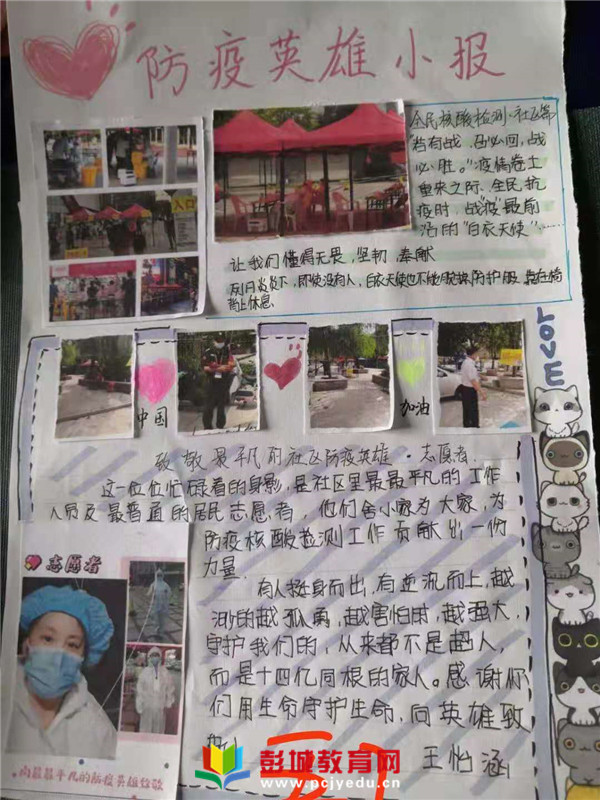 防疫英雄小报
入口
全民核酸检测·社区等
若有战,召必回,战
必胜。"疫情卷土
重来之际、全民抗
疫时,战"疫"最前
沿的"白衣天使"……
让我们懂得无畏,坚韧,奉献
烈日炎炎下,即使没有人,白衣天使也不能脱掉防护服,靠在椅
背上休息
LOVE
中国
加油
致敬最平凡的社区防疫英雄·志愿者.
这一位位忙碌着的身影,是社区里最最平凡的工作
人员及最普通的居民志愿者,他们舍小家为大家,为
防疫核酸检测工作贡献出一份
力量.
有人挺身而出,有逆流而上,越
越孤勇,越害怕时,越强大,
守护我们的,从来都不是超人,
而是十四亿同根的家人。感谢你
们用生命守护生命,向英雄致
王怡涵
志愿者
向最最平凡的防疫英雄致敬
彭城教育网
www.pcjyedu.cn